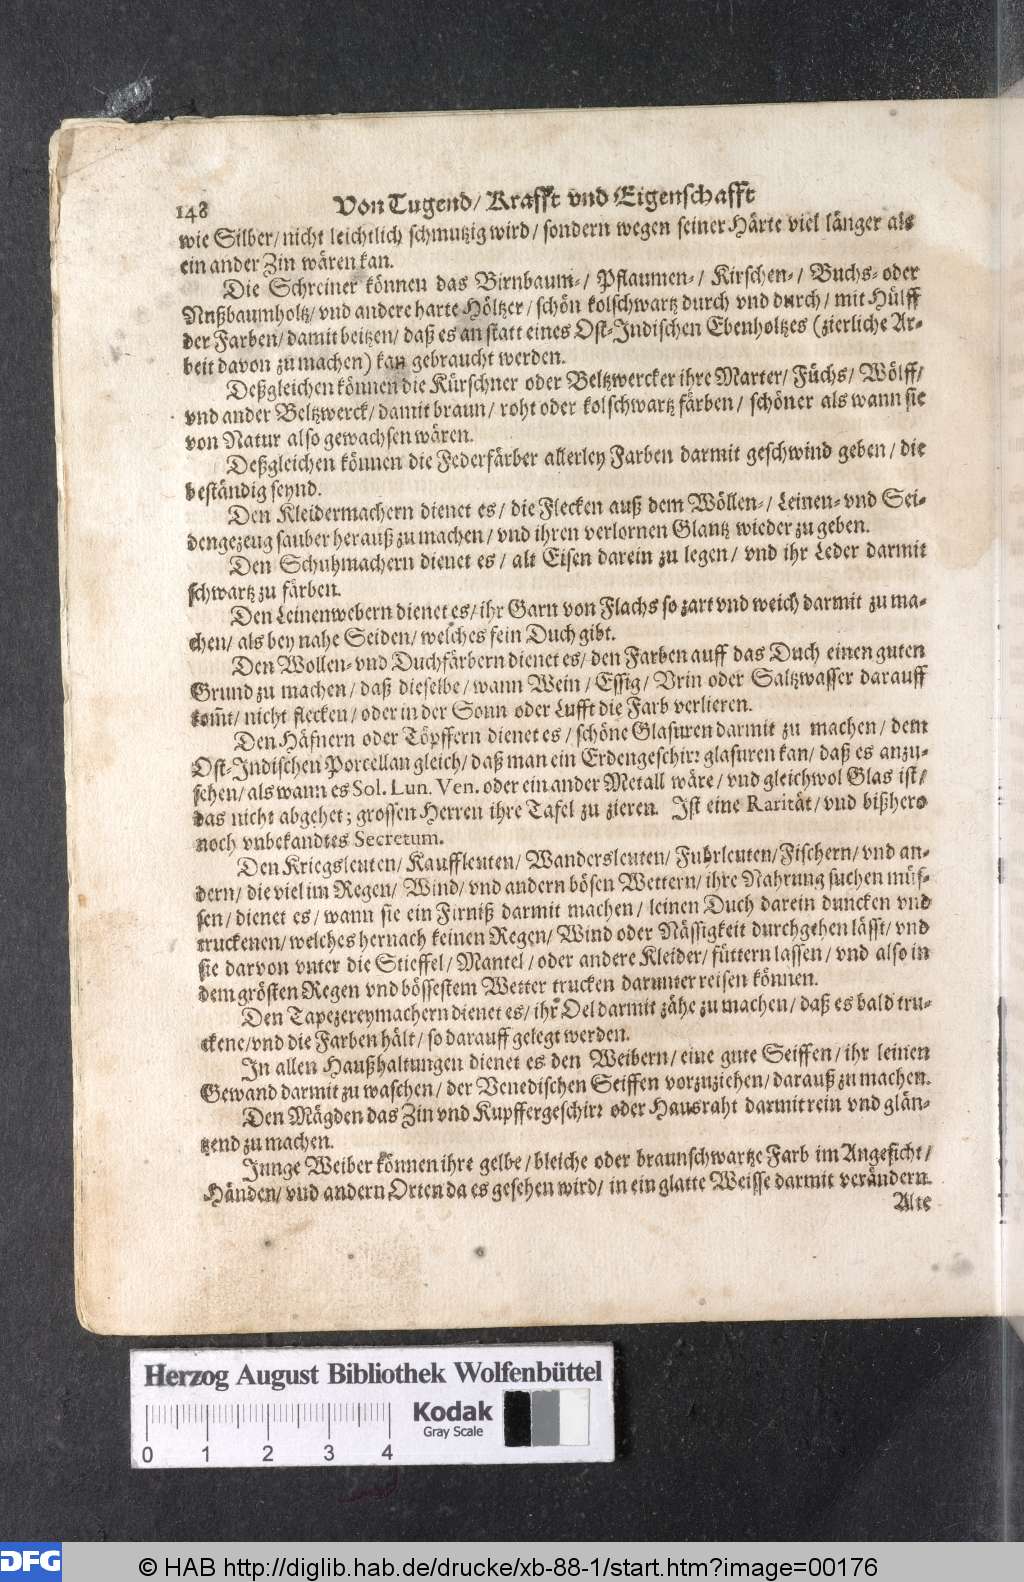 148
Von Tugend/ Krafft vnd Eigenschafft
wie Silber/ nicht leichtlich schmutzig wird/ sondern wegen seiner Härte viel länger als
ein ander Zin wären kan.
Die Schreiner können das Birnbaum-/ Pflaumen-/ Kirschen-/ Buchs- oder
Nußbaumholtz/ vnd andere harte Höltzer/ schön kolschwartz durch vnd durch/ mit Hülff
der Farben/ damit beitzen/ daß es an statt eines Ost-Indischen Ebenholtzes (zierliche Ar-
beit davon zu machen) kan gebraucht werden.
Deßgleichen können die Kürschner oder Beltzwercker ihre Marter/ Füchs/ Wölff/
vnd ander Beltzwerck/ damit braun/ roht oder kolschwartz färben/ schöner als wann sie
von Natur also gewachsen wären.
Deßgleichen können die Federfärber allerley Farben darmit geschwind geben/ die
beständig seynd.
Den Kleidermachern dienet es/ die Flecken auß dem Wöllen-/ Leinen- vnd Sei-
dengezeug sauber herauß zu machen/ vnd ihren verlornen Glantz wieder zu geben.
Den Schuhmachern dienet es/ alt Eisen darein zu legen/ vnd ihr Leder darmit
schwartz zu färben.
Den Leinenwebern dienet es/ ihr Garn von Flachs so zart vnd weich darmit zu ma-
chen/ als bey nahe Seiden/ welches fein Duch gibt.
Den Wollen- vnd Duchfärbern dienet es/ den Farben auff das Duch einen guten
Grund zu machen/ daß dieselbe/ wann Wein/ Essig/ Vrin oder Saltzwasser darauff
kom̃t/ nicht flecken/ oder in der Sonn oder Lufft die Farb verlieren.
Den Häfnern oder Töpffern dienet es/ schöne Glasuren darmit zu machen/ dem
Ost-Indischen Porcellan gleich/ daß man ein Erdengeschirr glasuren kan/ daß es anzu-
sehen/ als wann es Sol. Lun. Ven. oder ein ander Metall wäre/ vnd gleichwol Glas ist/
das nicht abgehet; grossen Herren ihre Tafel zu zieren. Ist eine Rarität/ vnd bißhero
noch vnbekandtes Secretum.
Den Kriegsleuten/ Kauffleuten/ Wandersleuten/ Fuhrleuten/ Fischern/ vnd an-
dern/ die viel im Regen/ Wind/ vnd andern bösen Wettern/ ihre Nahrung suchen müs-
sen/ dienet es/ wann sie ein Firniß darmit machen/ leinen Duch darein duncken vnd
truckenen/ welches hernach keinen Regen/ Wind oder Nässigkeit durchgehen lässt/ vnd
sie darvon vnter die Stieffel/ Mantel/ oder andere Kleider/ füttern lassen/ vnd also in
dem grösten Regen vnd bössestem Wetter trucken darunter reisen können.
Den Tapezereymachern dienet es/ ihr Oel darmit zähe zu machen/ daß es bald tru-
ckene/ vnd die Farben hält/ so darauff gelegt werden.
In allen Haußhaltungen dienet es den Weibern/ eine gute Seiffen/ ihr leinen
Gewand darmit zu waschen/ der Venedischen Seiffen vorzuziehen/ darauß zu machen.
Den Mägden das Zin vnd Kupffergeschirr oder Hausraht darmit rein vnd glän-
tzend zu machen.
Junge Weiber können ihre gelbe/ bleiche oder braunschwartze Farb im Angesicht/
Händen/ vnd andern Orten da es gesehen wird/ in ein glatte Weisse darmit verändern.
Alte
Herzog August Bibliothek Wolfenbüttel
Kodak
Gray Scale
0 1 2 3 4
DFG
© HAB http://diglib.hab.de/drucke/xb-88-1/start.htm?image=00176